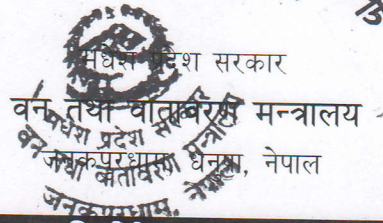 मधेश प्रदेश सरकार
वन तथा वातावरण मन्त्रालय
जनकपुरधाम, धनुषा, नेपाल
मधेश प्रदेश सरकार
वन तथा वातावरण मन्त्रालय
जनकपुरधाम, नेपाल